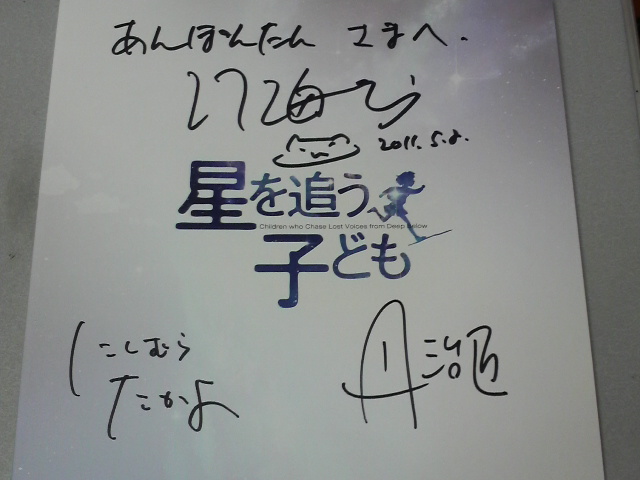 あんぽんたん さまへ.
2011.5.8.
星を追う
Children who Chase Lost Voices from Deep Below
子ども
にしむら
たかよ
丹治